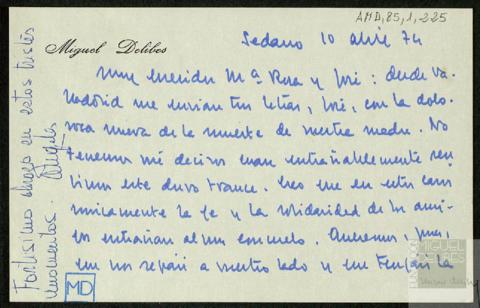 AMD,85,1,225
Miguel Delibes
Sedano 10 abril 74
Muy queridos Mª Rosa y José: desde Va-
lladolid me envían tus letras, José, con la dolo-
rosa nueva de la muerte de vuestra madre. No
tenemos que deciros cuan entrañablemente sen-
timos este duro trance. Creo que en estos casos
únicamente la fe y la solidaridad de los ami-
gos entrañan algún consuelo. Queremos, pues,
que nos sepáis a vuestro lado y que tengáis la
Fortísimo abrazo en estos tristes
momentos. Angeles
MD
FUNDACIÓN
MIGUEL
DELIBES